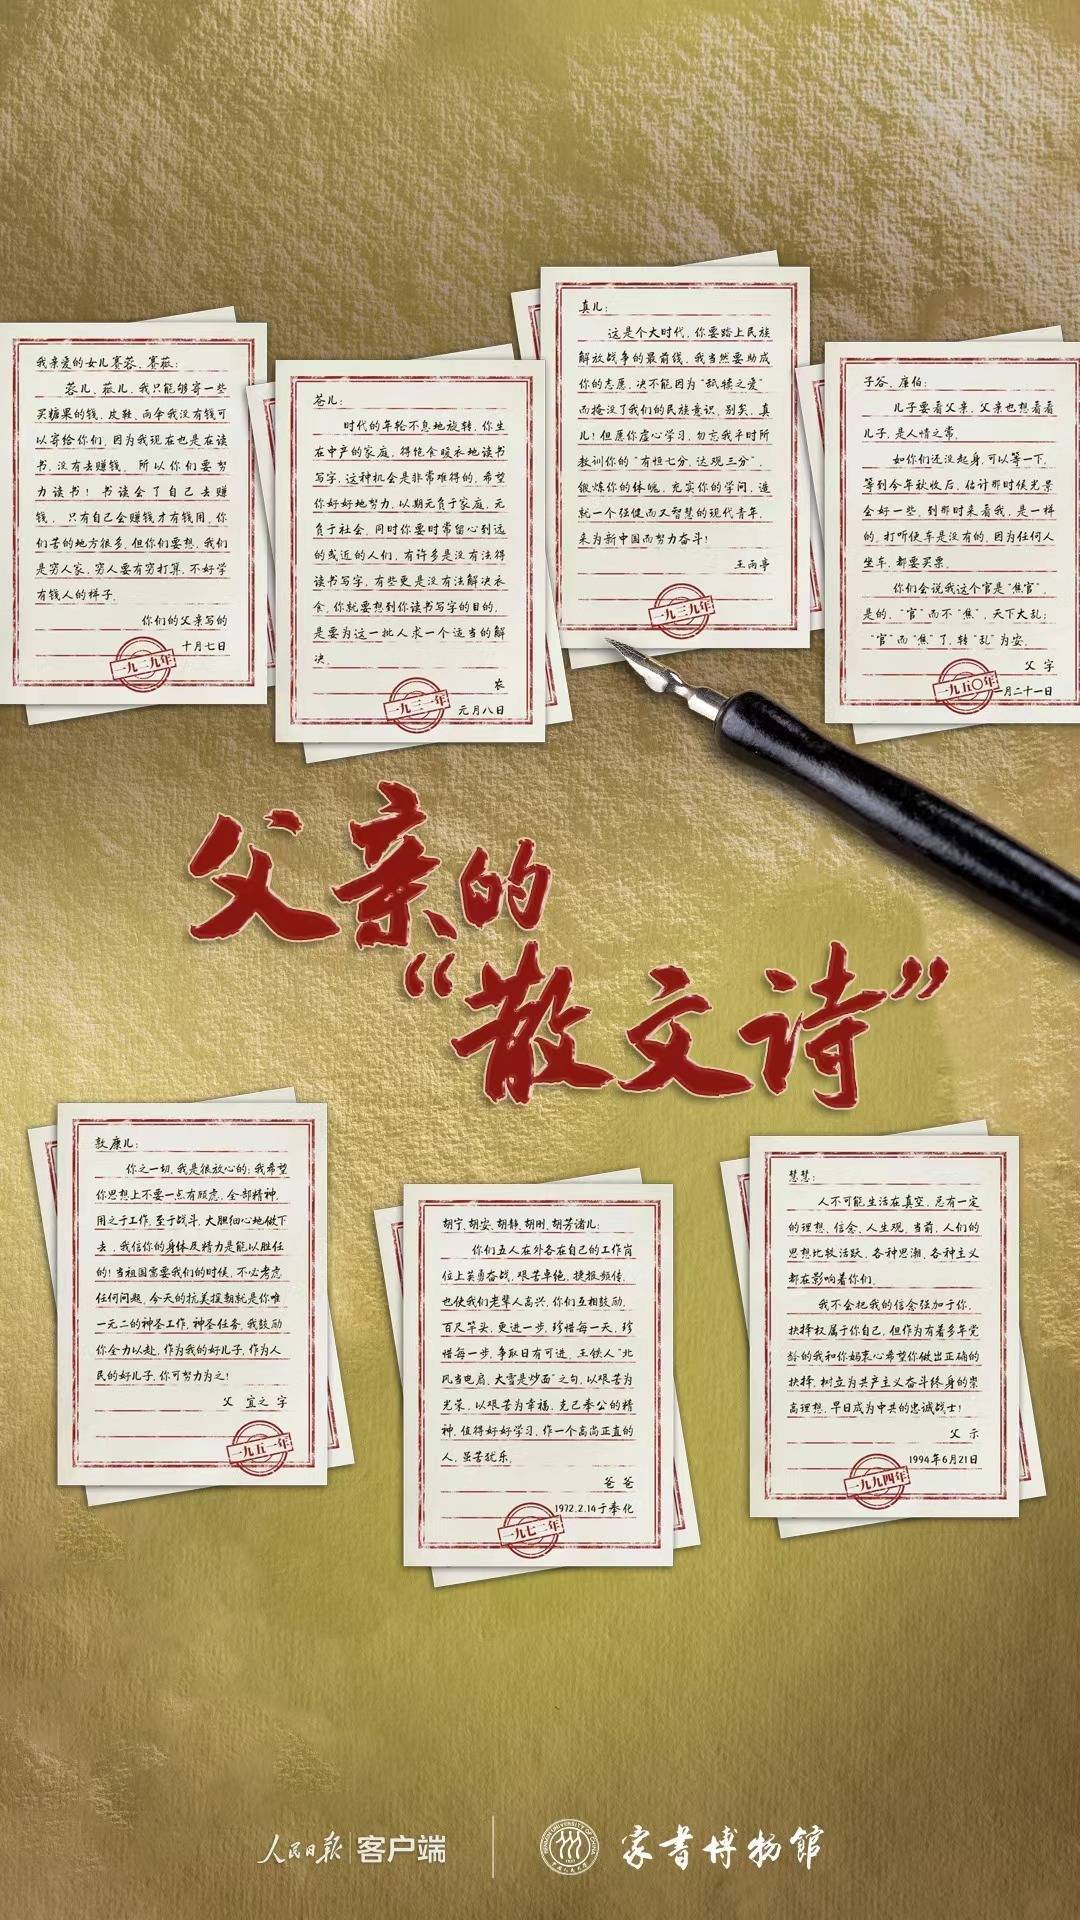 我亲爱的女儿赛蓉、赛菰:
蓉儿、菰儿,我只能够寄一些
买糖果的钱,皮鞋、雨伞我没有钱可
以寄给你们,因为我现在也是在读
书,没有去赚钱。所以你们要努
力读书!书读会了自己去赚
钱,只有自己会赚钱才有钱用,你
们苦的地方很多,但你们要想,我们
是穷人家,穷人要有穷打算,不好学
有钱人的样子。
你们的父亲写的
十月七日
一九二九年
苍儿:
时代的年轮不息地旋转,你生
在中产的家庭,得饱食暖衣地读书
写字,这种机会是非常难得的,希望
你好好地努力,以期无负于家庭,无
负于社会,同时你要时常留心到远
的或近的人们,有许多是没有法得
读书写字,有些更是没有法解决衣
食,你就要想到你读书写字的目的,
是要为这一批人求一个适当的解
决。
农
元月八日
一九三一年
真儿:
这是个大时代,你要踏上民族
解放战争的最前线,我当然要助成
你的志愿,决不能因为“舐犊之爱”
而掩没了我们的民族意识,别矣,真
儿!但愿你虚心学习,勿忘我平时所
教训你的“有恒七分,达观三分”,
锻炼你的体魄,充实你的学问,造
就一个强健而又智慧的现代青年,
来为新中国而努力奋斗!
王雨亭
一九三九年
子谷、廉伯:
儿子要看父亲,父亲也想看看
儿子,是人情之常。
如你们还没起身,可以等一下,
等到今年秋收后,估计那时候光景
会好一些,到那时来看我,是一样
的,打听便车是没有的,因为任何人
坐车,都要买票。
你们会说我这个官是“焦官”,
是的,“官”而不“焦”,天下大乱;
“官”而“焦”了,转“乱”为安。
父字
一月二十一日
一九五〇年
父亲的
“散文诗”
敦康儿:
你之一切,我是很放心的;我希望
你思想上不要一点有顾虑,全部精神,
用之于工作,至于战斗,大胆细心地做下
去,我信你的身体及精力是能以胜任
的!当祖国需要我们的时候,不必考虑
任何问题,今天的抗美援朝就是你唯
一无二的神圣工作,神圣任务,我鼓励
你全力以赴,作为我的好儿子,作为人
民的好儿子,你可努力为之!
父 宜之 字
一九五一年
胡宁、胡安、胡静、胡刚、胡芳诸儿:
你们五人在外各在自己的工作岗
位上英勇奋战,艰苦卓绝,捷报频传,
也使我们老辈人高兴,你们互相鼓励,
百尺竿头,更进一步,珍惜每一天,珍
惜每一步,争取日有可进,王铁人“北
风当电扇,大雪是炒面”之句,以艰苦为
光荣,以艰苦为幸福,克己奉公的精
神,值得好好学习,作一个高尚正直的
人,虽苦犹乐。
爸爸
1972.2.14于奉化
一九七二年
慧慧:
人不可能生活在真空,总有一定
的理想、信念、人生观,当前,人们的
思想比较活跃,各种思潮、各种主义
都在影响着你们。
我不会把我的信念强加于你,
抉择权属于你自己,但作为有着多年党
龄的我和你妈衷心希望你做出正确的
抉择,树立为共产主义奋斗终身的崇
高理想,早日成为中共的忠诚战士!
父 示
1994年6月21日
一九九四年
人民日报 客户端
家书博物馆